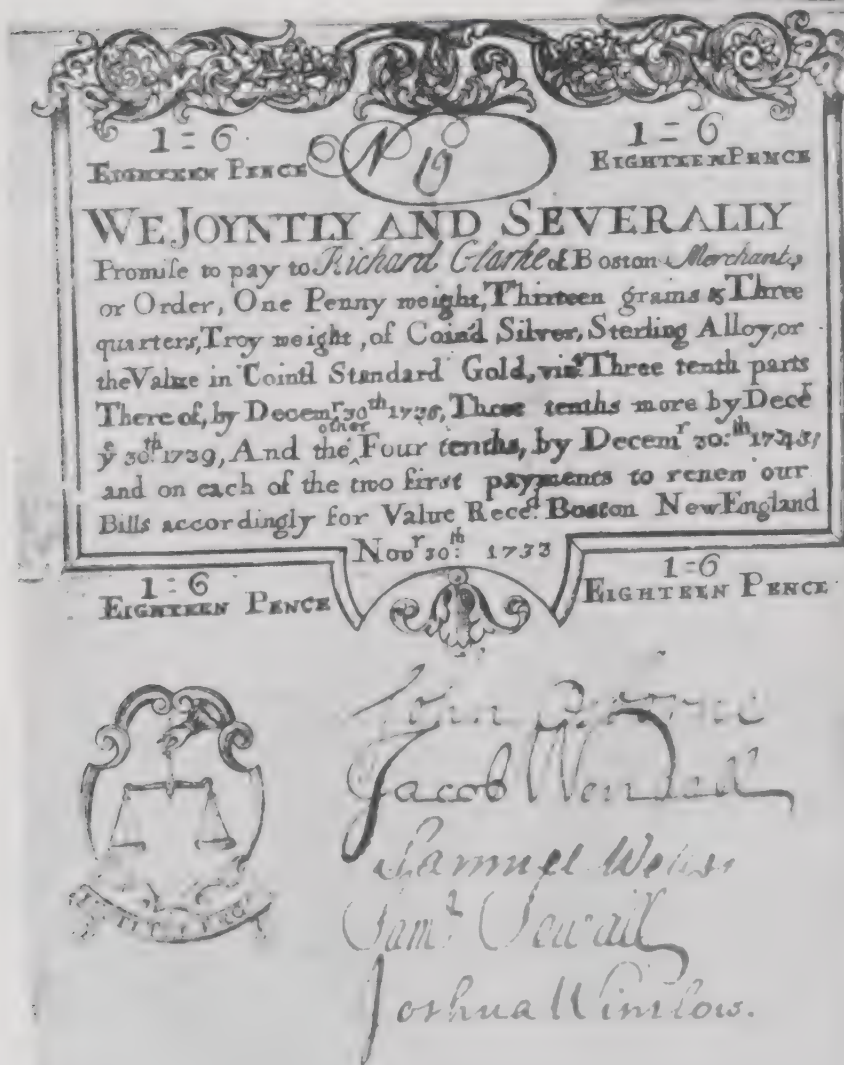 1=6 1=6
EIGHTEEN PENCE N 19 EIGHTEEN PENCE
WE JOYNTLY AND SEVERALLY
Promise to pay to Richard Clarke of Boston Merchant,
or Order, One Penny weight, Thirteen grains & Three
quarters, Troy weight, of Coin'd Silver, Sterling Alloy, or
the Value in Coin'd Standard Gold, vizt. Three tenth parts
There of, by Decemr. 30th 173, Three tenths more by Decer
ye 30th. 1739, And the other Four tenths, by Decemr 30:th 1743,
and on each of the two first payments to renew our
Bills accordingly for Value Reced. Boston New England
Novr 30th: 1733
1=6 1=6
EIGHTEEN PENCE EIGHTEEN PENCE
John
Jacob Wendell
Samuel Welles
Saml. Sewall
Joshua Winslow.